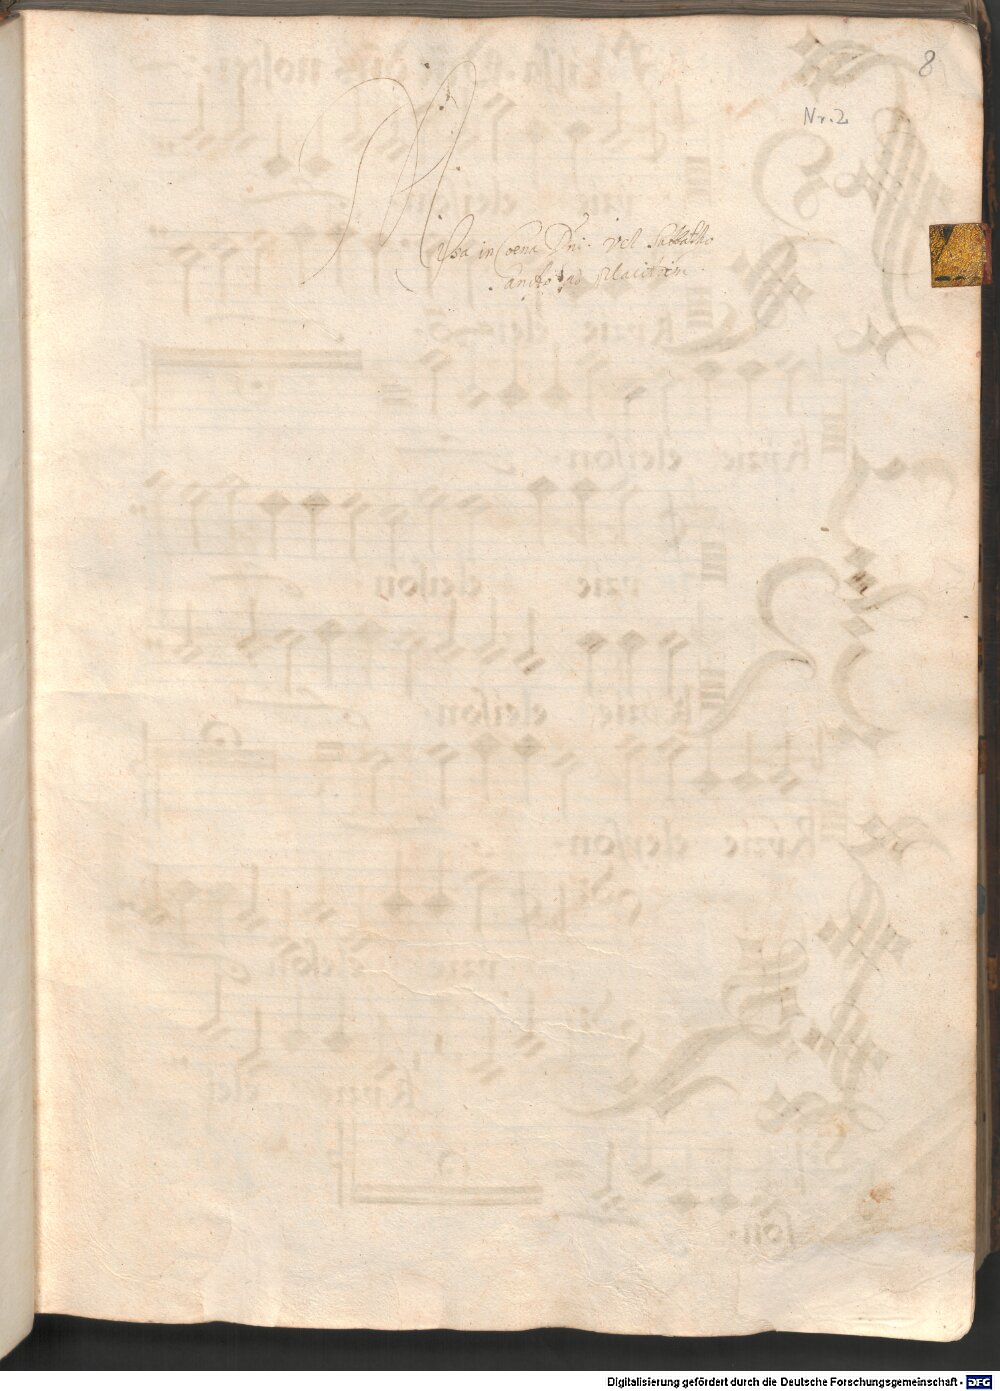 8
Nr. 2
Missa in Coena Dni. vel Sabbatho
Sancto ad placitum.
Digitalisierung gefördert durch die Deutsche Forschungsgemeinschaft - DFG